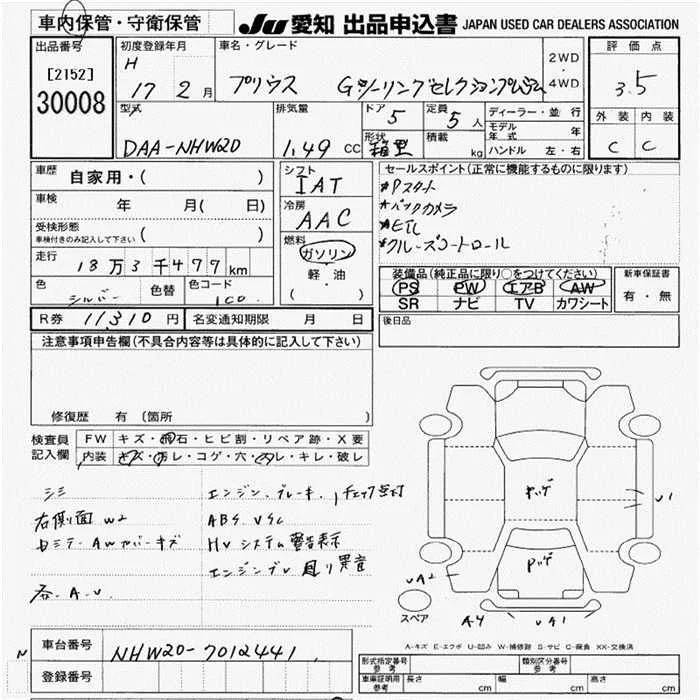 車内保管・守衛保管 JU 愛知 出品申込書 JAPAN USED CAR DEALERS ASSOCIATION
出品番号 初度登録年月 車名・グレード 2WD 評価点
[2152] H ・
30008 17 2月 プリウス Gツーリングセレクションプレミアム 4WD 3.5
型式 排気量 ドア 5 定員 5人 ディーラー・並行 外装 内装
DAA-NHW20 1.49 CC 形状 箱型 積載 kg モデル年式 年 C C
ハンドル 左・右
車歴 自家用・( ) シフト IAT セールスポイント(正常に機能するものに限ります)
車検 年 月( 日) 冷房 AAC *Pスタート
*バックカメラ
受検形態 ( ) *ETC
車検付きのみ記入して下さい 燃料 *クルーズコントロール
走行 18万3千477km ガソリン
軽・油 装備品(純正品に限り○をつけてください) 新車保証書
色 シルバー 色替 色コード 1C0 ( ) PS PW エアB AW 有・無
SR ナビ TV カワシート
R券 11,310円 名変通知期限 月 日 後日品
注意事項申告欄(不具合内容等は具体的に記入して下さい)
修復歴 有 (箇所 )
検査員 FW キズ・飛石・ヒビ割・リペア跡・X要
記入欄 内装 キズ・汚レ・コゲ・穴・スレ・キレ・破レ
シミ エンジン、ブレーキ、チェック点灯
右側面 W2 ABS VSC
HVシステム警告表示
エンジン 廻り異音
各-A-U
ヤッゲ
U1
UA2
スペア A4 UA1
A-キズ E-エクボ U-凹み W-補修跡 S-サビ C-腐食 XX-交換済
車台番号 NHW20-7012441
登録番号
形式指定番号 参考 類別区分番号 参考
車庫証明用 参考 長さ cm 幅 cm 高さ cm